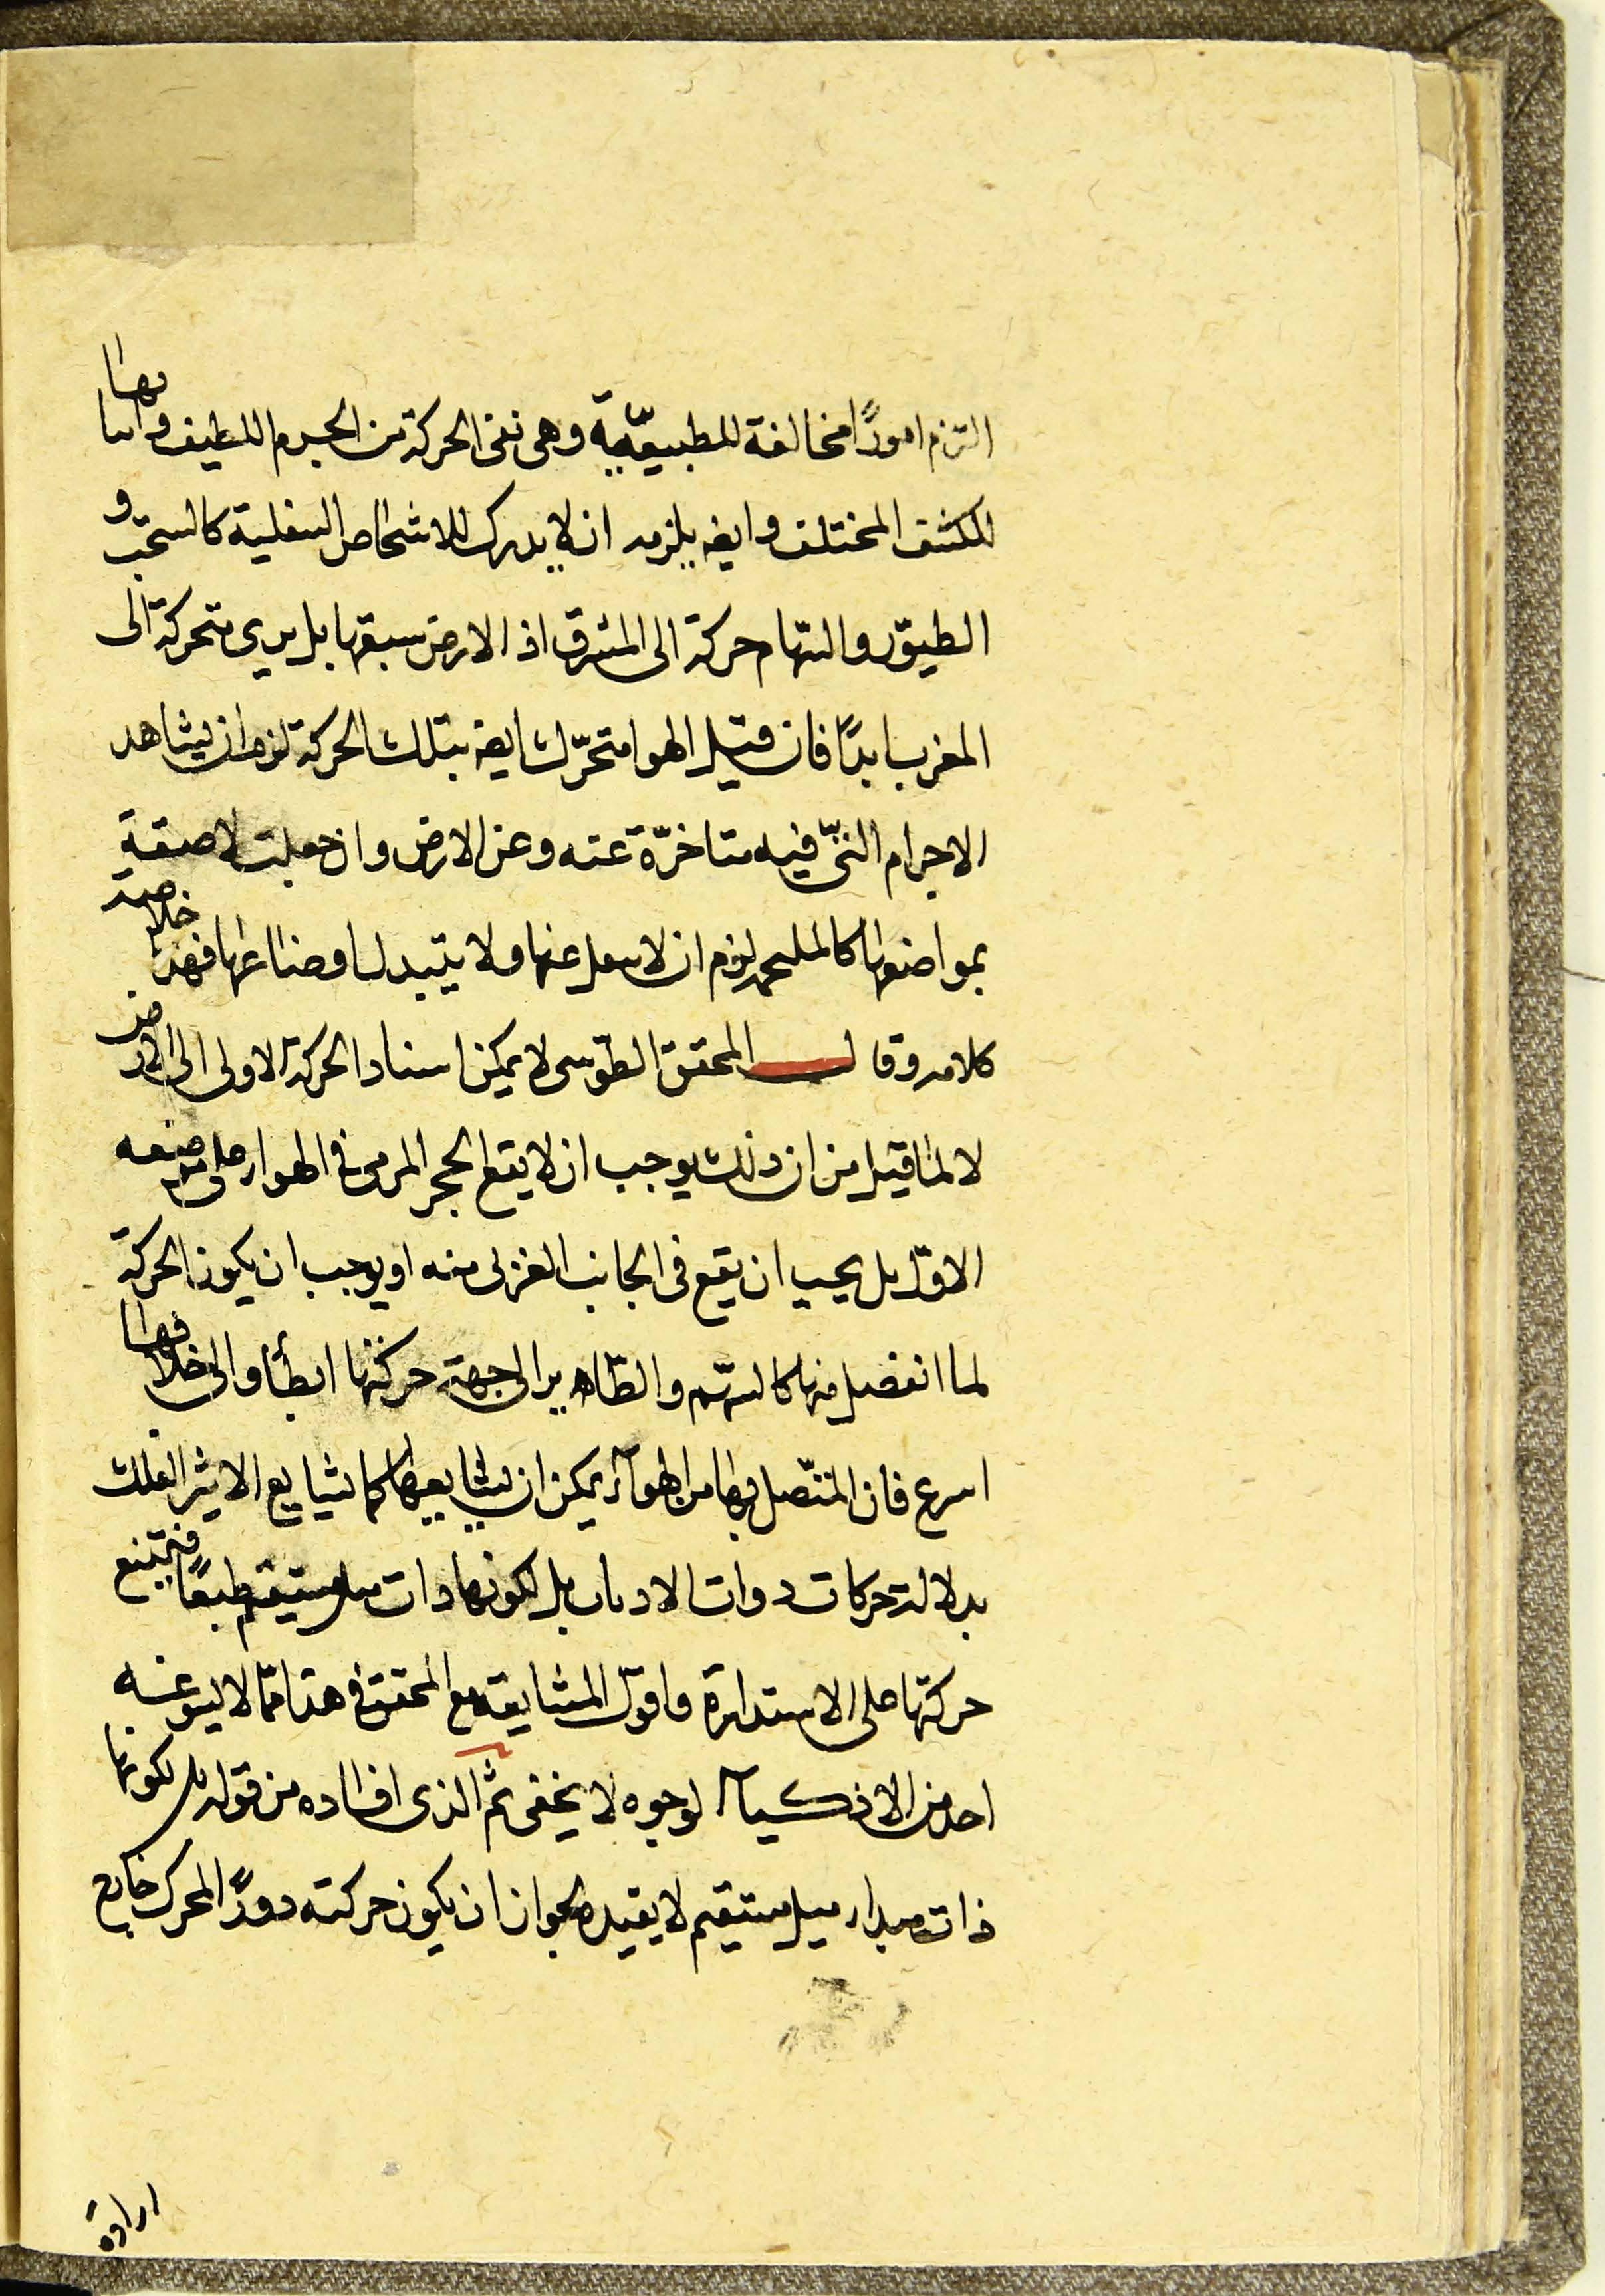 التزم امورًا مخالفة للطبيعية وهى نفى الحركة من الجرم اللطيف واثباتها
للكثيف المختلف وايضا يلزمه ان لا يدرك للاشخاص السفلية كالسحب و
الطيور والسهام حركة الى المشرق اذ الارض سبقها بل يرى متحركة الى
المغرب ابدًا فان قيل الهوا متحرك ايضا بتلك الحركة لزم ان يشاهد
الاجرام التى فيه متاخرة عنه وعن الارض وان جعلت لاصقة
بمواضعها كالملتحمة لزم ان لا عنها ولا يتبدل اوضاعها فهذا خلاصة
كلامه وقال المحقق الطوسى لا يمكن اسناد الحركة الاولى الى الارض
لا لما قيل من ان ذلك يوجب ان لا يقع الحجر المرمى فى الهواء على موضعه
الاول بل يجب ان يقع فى الجانب الغربى منه او يوجب ان يكون الحركة
لما انفصل منها كالسهم والطاير الى جهة حركتها ابطأ والى خلافها
اسرع فان المتصل بها من الهوآء يمكن ان يشايعها كما يشايع الاثير الفلك
بدلالة حركات ذوات الاذناب بل لكونها ذات ميل مستقيم طبعًا فيمتنع
حركتها على الاستدارة واقول المشايعة مع المحقق فى هذا مما لا يسوغه
احد من الاذكيآء لوجوه لا يخفى ثم الذى افاده من قوله بل لكونها
ذات مبداء ميل مستقيم لا يفيد لجواز ان يكون حركته دورًا لمحرك خارج
ارادة